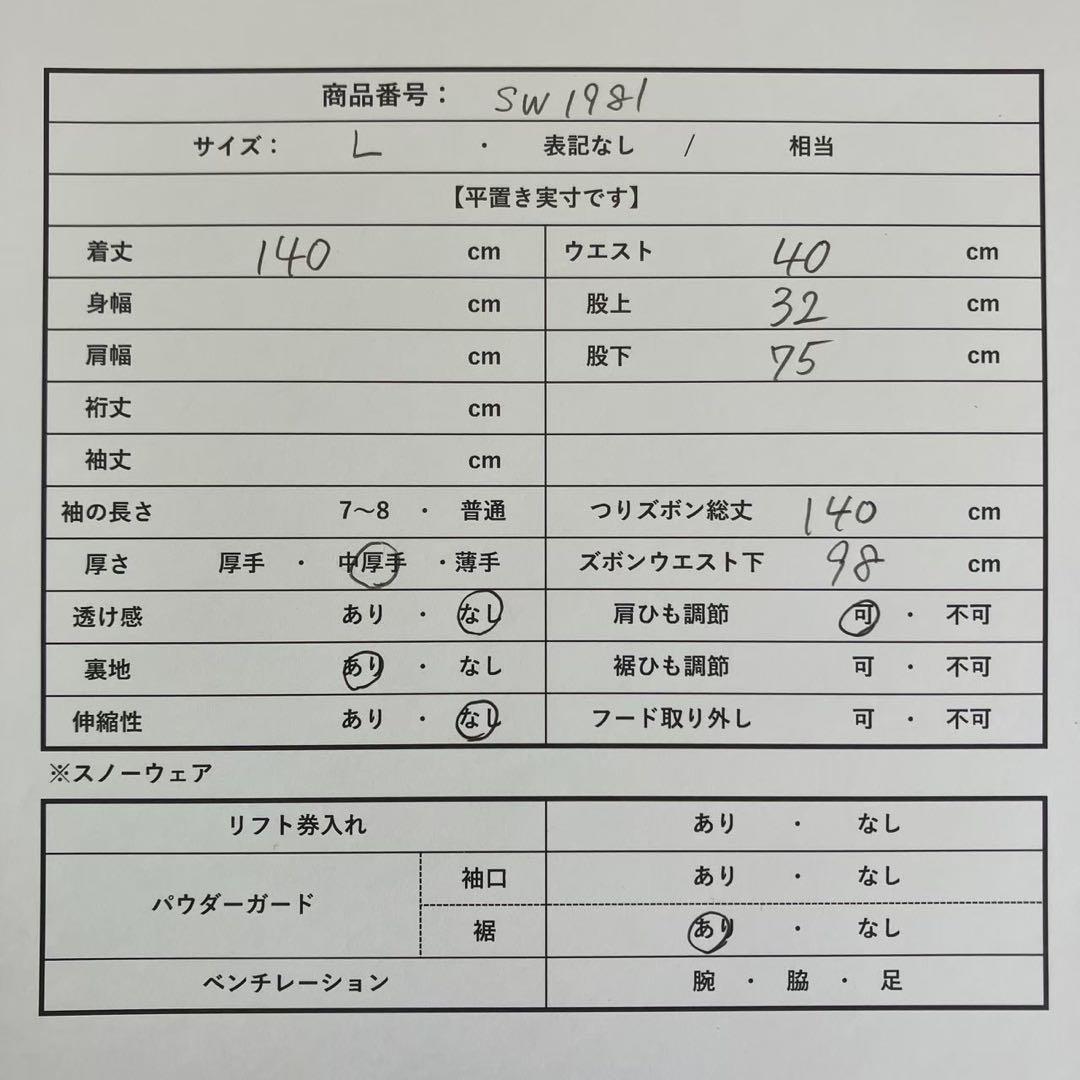 商品番号： SW1981
サイズ： L ・ 表記なし / 相当
【平置き実寸です】
着丈 140 cm ウエスト 40 cm
身幅 cm 股上 32 cm
肩幅 cm 股下 75 cm
裄丈 cm
袖丈 cm
袖の長さ 7〜8 ・ 普通 つりズボン総丈 140 cm
厚さ 厚手 ・ 中厚手 ・薄手 ズボンウエスト下 98 cm
透け感 あり ・ なし 肩ひも調節 可 ・ 不可
裏地 あり ・ なし 裾ひも調節 可 ・ 不可
伸縮性 あり ・ なし フード取り外し 可 ・ 不可
※スノーウェア
リフト券入れ あり ・ なし
パウダーガード 袖口 あり ・ なし
裾 あり ・ なし
ベンチレーション 腕 ・ 脇 ・ 足